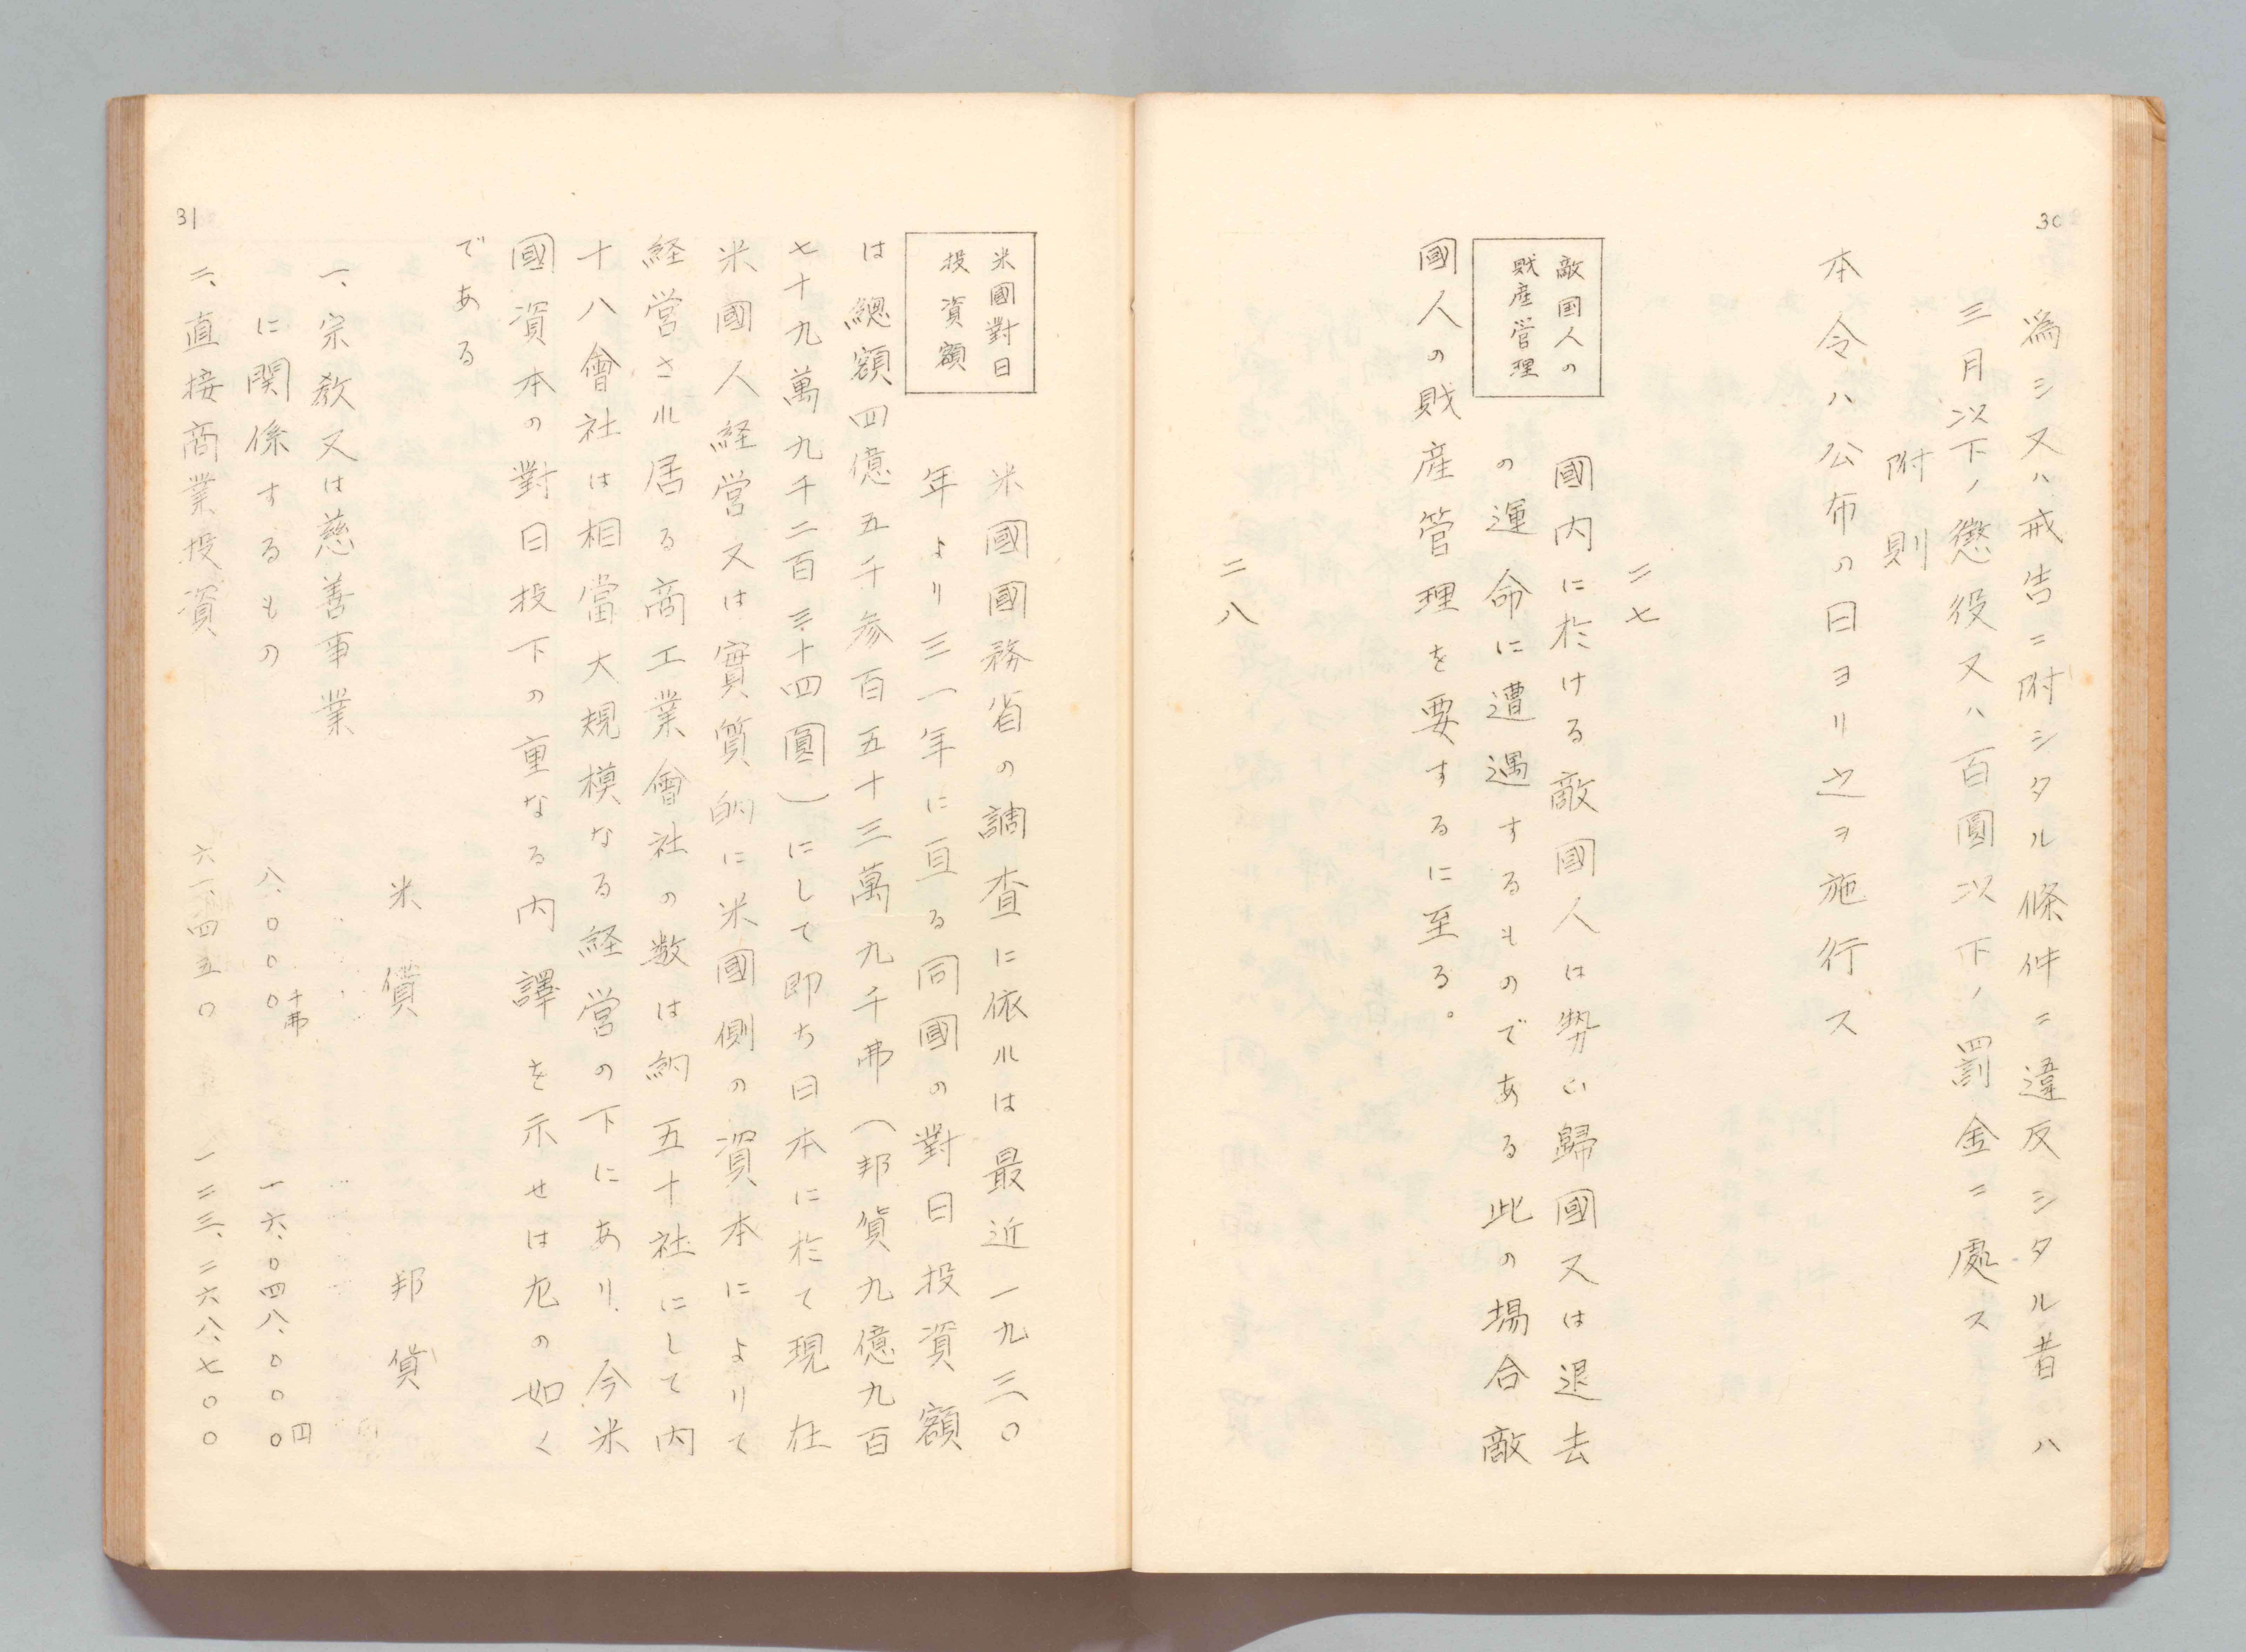 30
爲シ又ハ戒告ニ附シタル條件ニ違反シタル者ハ
三月以下ノ懲役又ハ百圓以下ノ罰金ニ處ス
附則
本令ハ公布の日ヨリ之ヲ施行ス
二七
敵国人の
財産営理
國内に於ける敵國人は勢い歸國又は退去
の運命に遭遇するものである此の場合敵
國人の財産管理を要するに至る。
二八
米國對日
投資額
米國國務省の調査に依ルは最近一九三〇
年より三一年に亘る同國の對日投資額
は總額四億五千参百五十三萬九千弗(邦貨九億九百
七十九萬九千二百三十四圓)にして即ち日本に於て現在
米國人経営又は實質的に米國側の資本によりて
経営さル居る商工業會社の数は約五十社にして内
十八會社は相當大規模なる経営の下にあり、今米
國資本の對日投下の重なる内譯を示せは左の如く
である
米貨 邦貨
一、宗教又は慈善事業
に関係するもの 八、〇〇〇千弗 一六、〇四八、〇〇〇円
二、直接商業投資 六一、四五〇 一二三、二六八、七〇〇
31